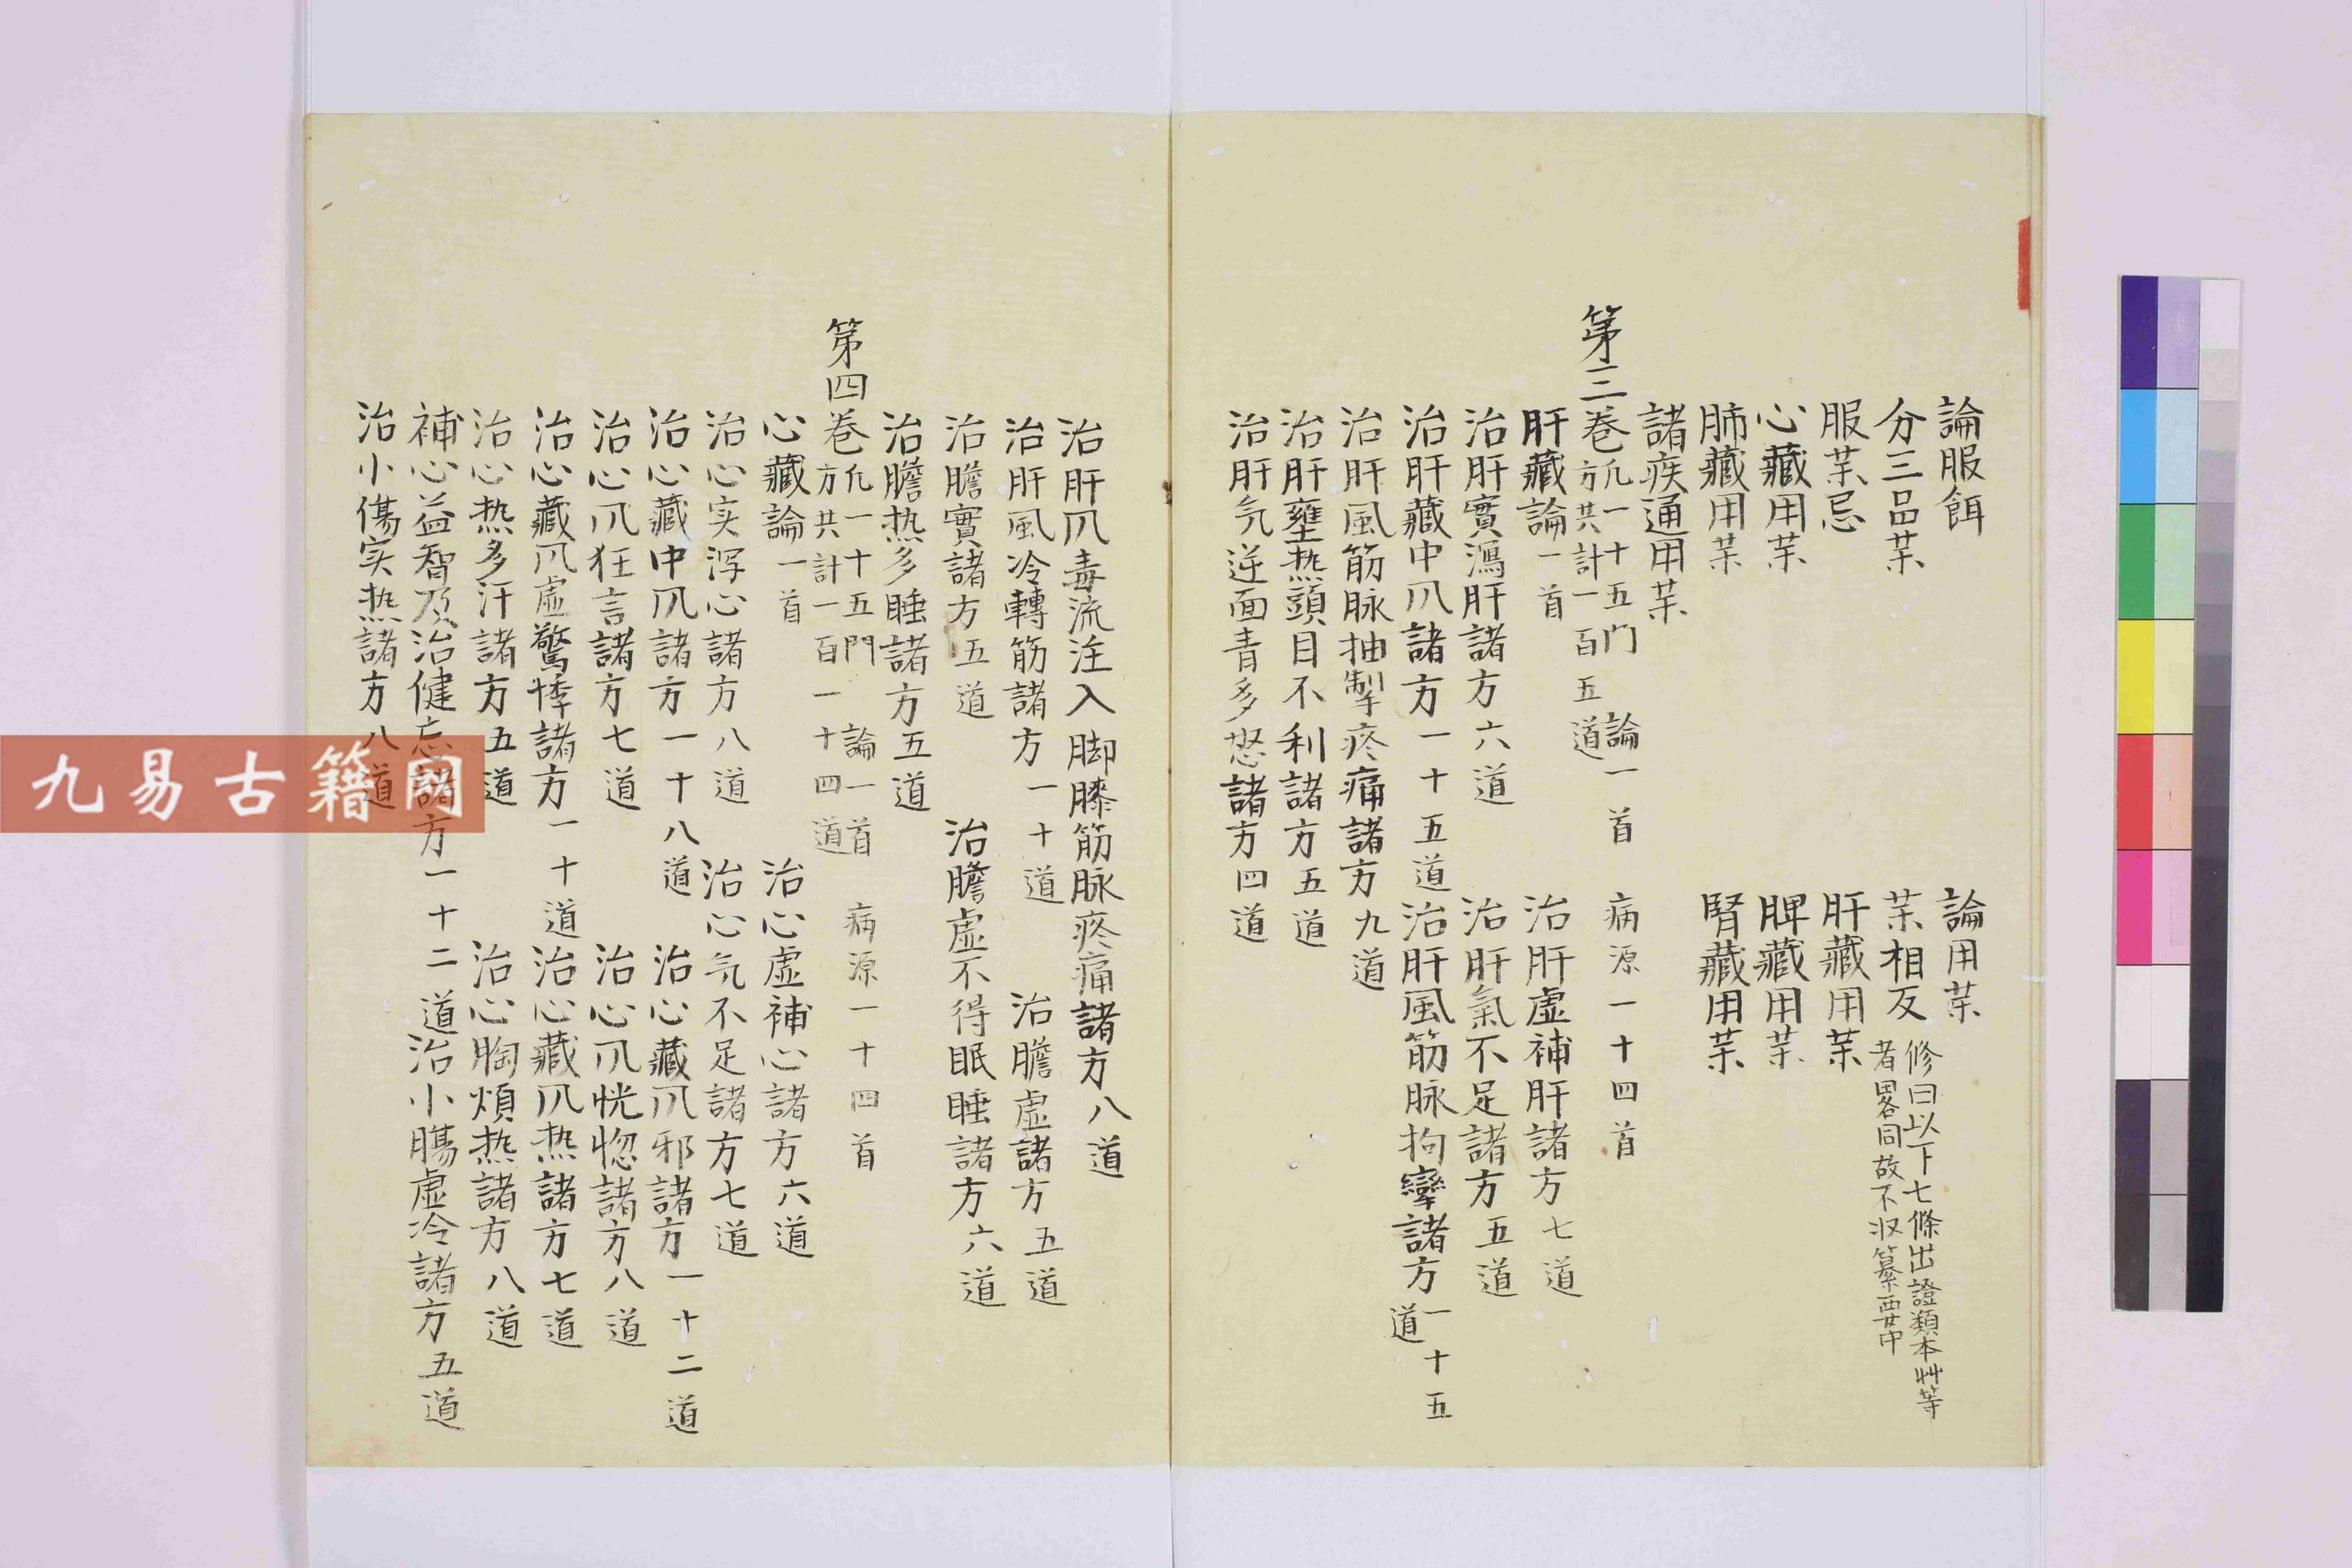 論服餌　論用茱
分三品茱　茱相反　修曰以下七條出證類本艸等者畧同故不収纂要中
服茱忌　肝藏用茱
心藏用茱　脾藏用茱
肺藏用茱　腎藏用茱
諸疾通用茱
第三巻　凢一十五门　論一首　病源一十四首　方共計一百五道
肝藏論一首　治肝虛補肝諸方七道
治肝實瀉肝諸方六道　治肝氣不足諸方五道
治肝藏中凨諸方一十五道　治肝風筋脉拘攣諸方一十五道
治肝風筋脉抽掣疼痛諸方九道
治肝壅热頭目不利諸方五道
治肝気逆面青多怒諸方四道
治肝凨毒流注入脚膝筋脉疼痛諸方八道
治肝風冷轉筋諸方一十道　治膽虛諸方五道
治膽實諸方五道　治膽虛不得眠睡諸方六道
治膽热多睡諸方五道
第四巻　凢一十五門　論一首　病源一十四首　方共計一百一十四道
心藏論一首　治心虛補心諸方六道
治心实泻心諸方八道　治心気不足諸方七道
治心藏中凨諸方一十八道　治心藏凨邪諸方一十二道
治心凨狂言諸方七道　治心凨恍惚諸方八道
治心藏凨虛驚悸諸方一十道　治心藏凨热諸方七道
治心热多汗諸方五道　治心胸煩热諸方八道
補心益智及治健忘諸方一十二道　治小腸虛冷諸方五道
治小傷实热諸方八道
九易古籍网